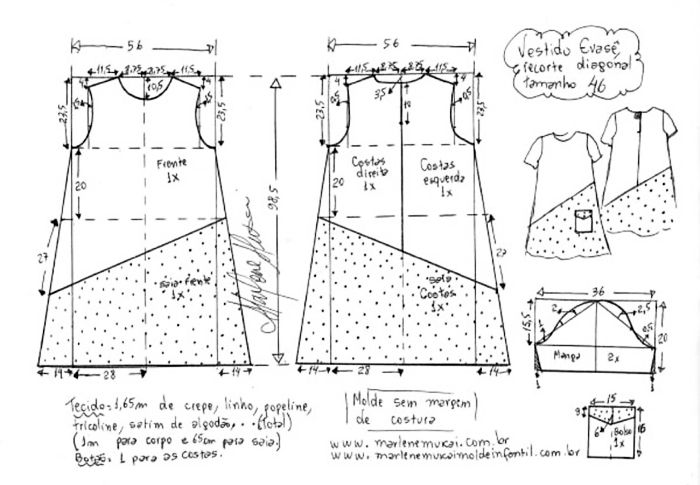 56
56
Vestido Evasê
recorte diagonal
tamanho 46
11,5 8,75 8,75 11,5
11,5 8,75 8,75 11,5
4 10,5 4
4 3,5 4
23,5 23,5
23,5 0,5 18 0,5 23,5
Frente
1x
Costas
direita
1x
Costas
esquerda
1x
20
20
98,5
Marlene Mukai
27
27
saia frente
1x
saia
Costas
1x
14 28 14
14 28 14
36
15,5 2 2,5 0,5 20
Manga 2x
1 1
15
3 6 Bolso 16
1x
Tecido: 1,65m de crepe, linho, popeline,
tricoline, satim de algodão, ... (total)
(1m para corpo e 65cm para saia.)
Botão: 1 para as costas.
Molde sem margem
de costura
www.marlenemukai.com.br
www.marlenemukaimoldeinfantil.com.br